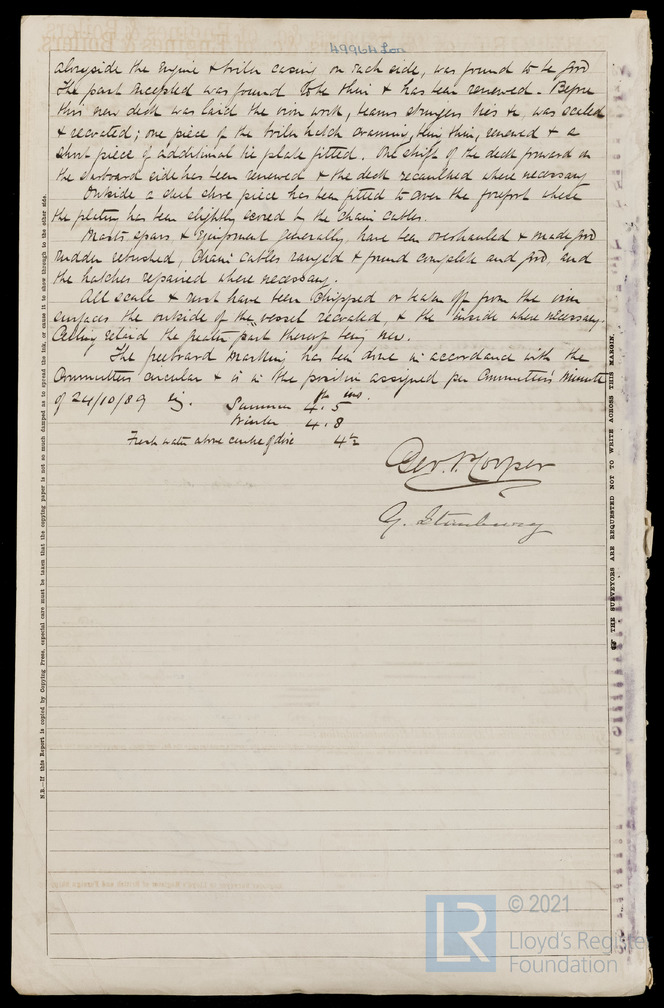 49964 Lon
alongside the engine & boiler casing on each side, was found to be good
The part accepted was found to be thin & has been renewed. Before
this new deck was laid the iron work, beams stringers ties &c was scaled
& recoated; one piece of the boiler hatch coaming, thin, renewed & a
short piece of additional tie plate fitted. One shift of the deck forward on
the starboard side has been renewed & the deck recaulked where necessary
Outside a steel shoe piece has been fitted to cover the forefoot where
the plates has been slightly scored by the chain cables.
Masts, spars & equipment generally have been overhauled & made good
rudder rebushed, chain cables ranged & found complete and good, and
the hatches repaired where necessary.
All scale & rust have been chipped or beaten off from the iron
surfaces the outside of the vessel recoated, & the inside where necessary.
Ceiling relaid the greater part thereof being new.
The freeboard marking has been done in accordance with the
Committees circular & is in the position assigned per Committee's Minute
of 24/10/89 viz. Summer 4 ft. 5 ins.
Winter 4.8
Fresh water above centre of disc 4½
Geo. Hooper
G. Stanbury
N.B.—If this Report is copied by Copying Press, especial care must be taken that the copying paper is not so much damped as to spread the ink, or cause it to show through to the other side.
THE SURVEYORS ARE REQUESTED NOT TO WRITE ACROSS THIS MARGIN.
LR
© 2021
Lloyd's Register
Foundation